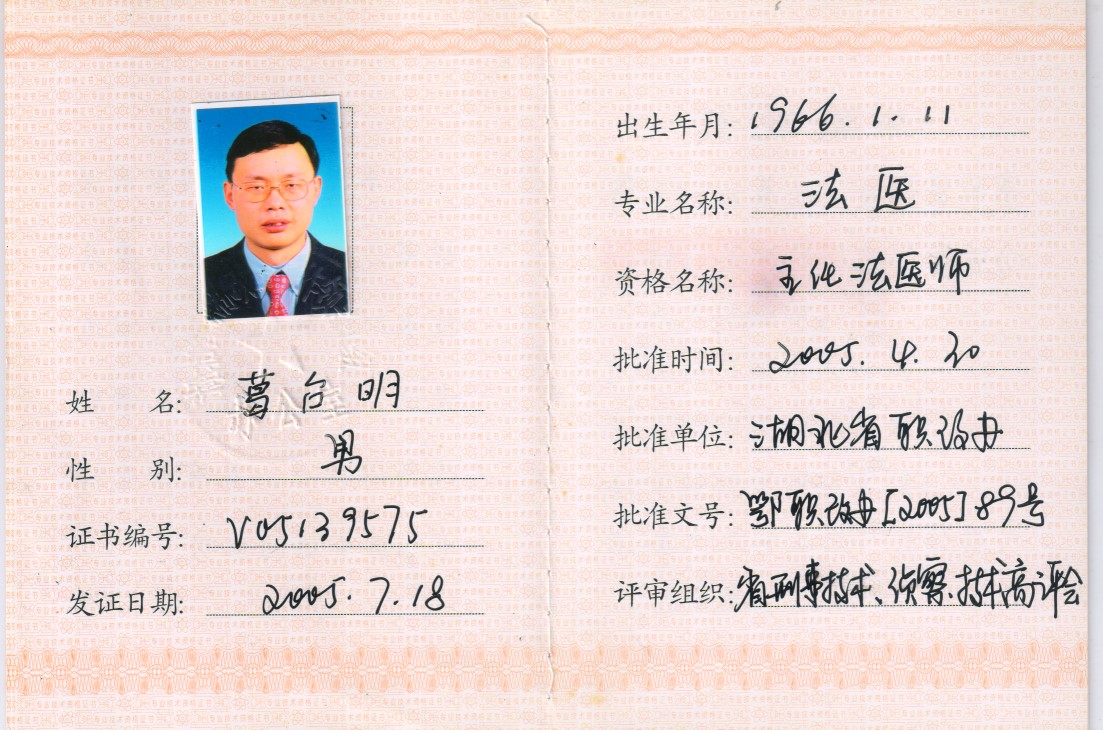 姓 名: 葛台明
性 别: 男
证书编号: V05139575
发证日期: 2005.7.18
出生年月: 1966.1.11
专业名称: 法医
资格名称: 主任法医师
批准时间: 2005.4.20
批准单位: 湖北省职改办
批准文号: 鄂职改办[2005]89号
评审组织: 省刑事技术、侦察技术高评会